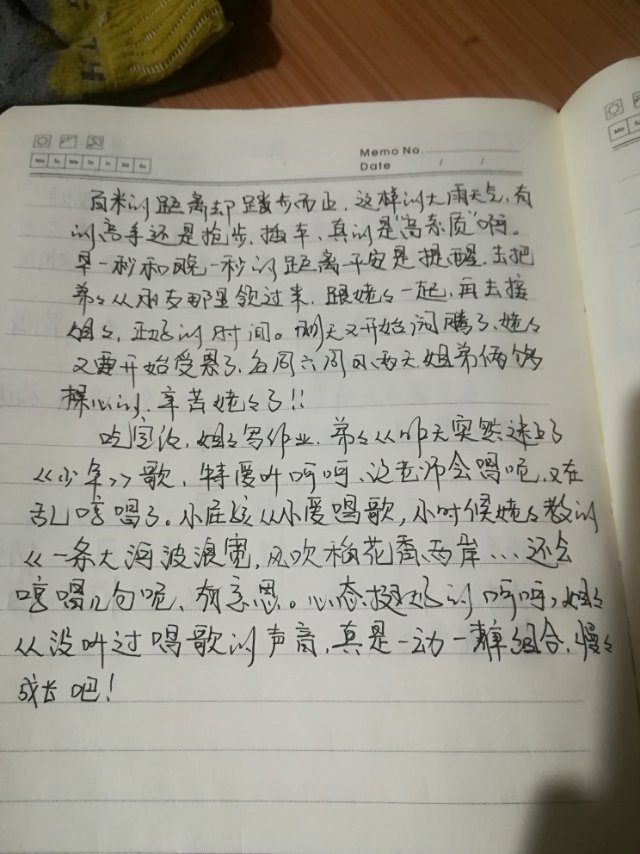 Memo No.
Mo Tu We Th Fr Sa Su
Date / /
百米的距离却踏步而止，这样的大雨天气，有
的高手还是抢步、插车、真的是"高素质"啊。
早一秒和晚一秒的距离平安是提醒，去把
弟弟从朋友那里领过来，跟姥姥一起，再去接
姐姐，正好的时间。明天又开始闹腾了，姥姥
又要开始受累了，每周六周日两天姐弟俩够
操心的，辛苦姥姥了！！
吃完饭，姐姐写作业，弟弟从昨天突然迷上了
《少年》歌，特爱叫呵呵，说老师会唱呢，又在
乱哼唱了。小屁孩从小爱唱歌，小时候姥姥教的
《一条大河波浪宽，风吹稻花香两岸...还会
哼唱几句呢，有意思。心态挺好的呵呵，姐姐
从没听过唱歌的声音，真是一动一静组合，慢慢
成长吧！
Mo Tu